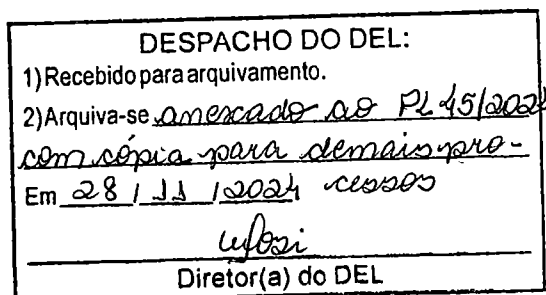 DESPACHO DO DEL:
1) Recebido para arquivamento.
2) Arquiva-se anexado ao PL 45/2024
com cópia para demais pro-
Em 28 / 11 / 2024 cessos
Diretor(a) do DEL